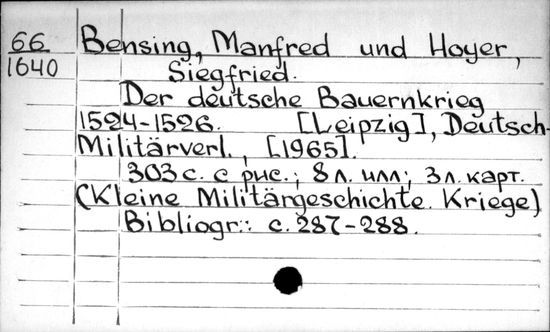 66
1640
Bensing, Manfred und Hoyer,
Siegfried.
Der deutsche Bauernkrieg
1524-1526. [Leipzig], Deutsch-
Militärverl., [1965].
303 с. с рис.; 8 л. илл; 3 л. карт.
(Kleine Militärgeschichte. Kriege)
Bibliogr.: с. 287-288.